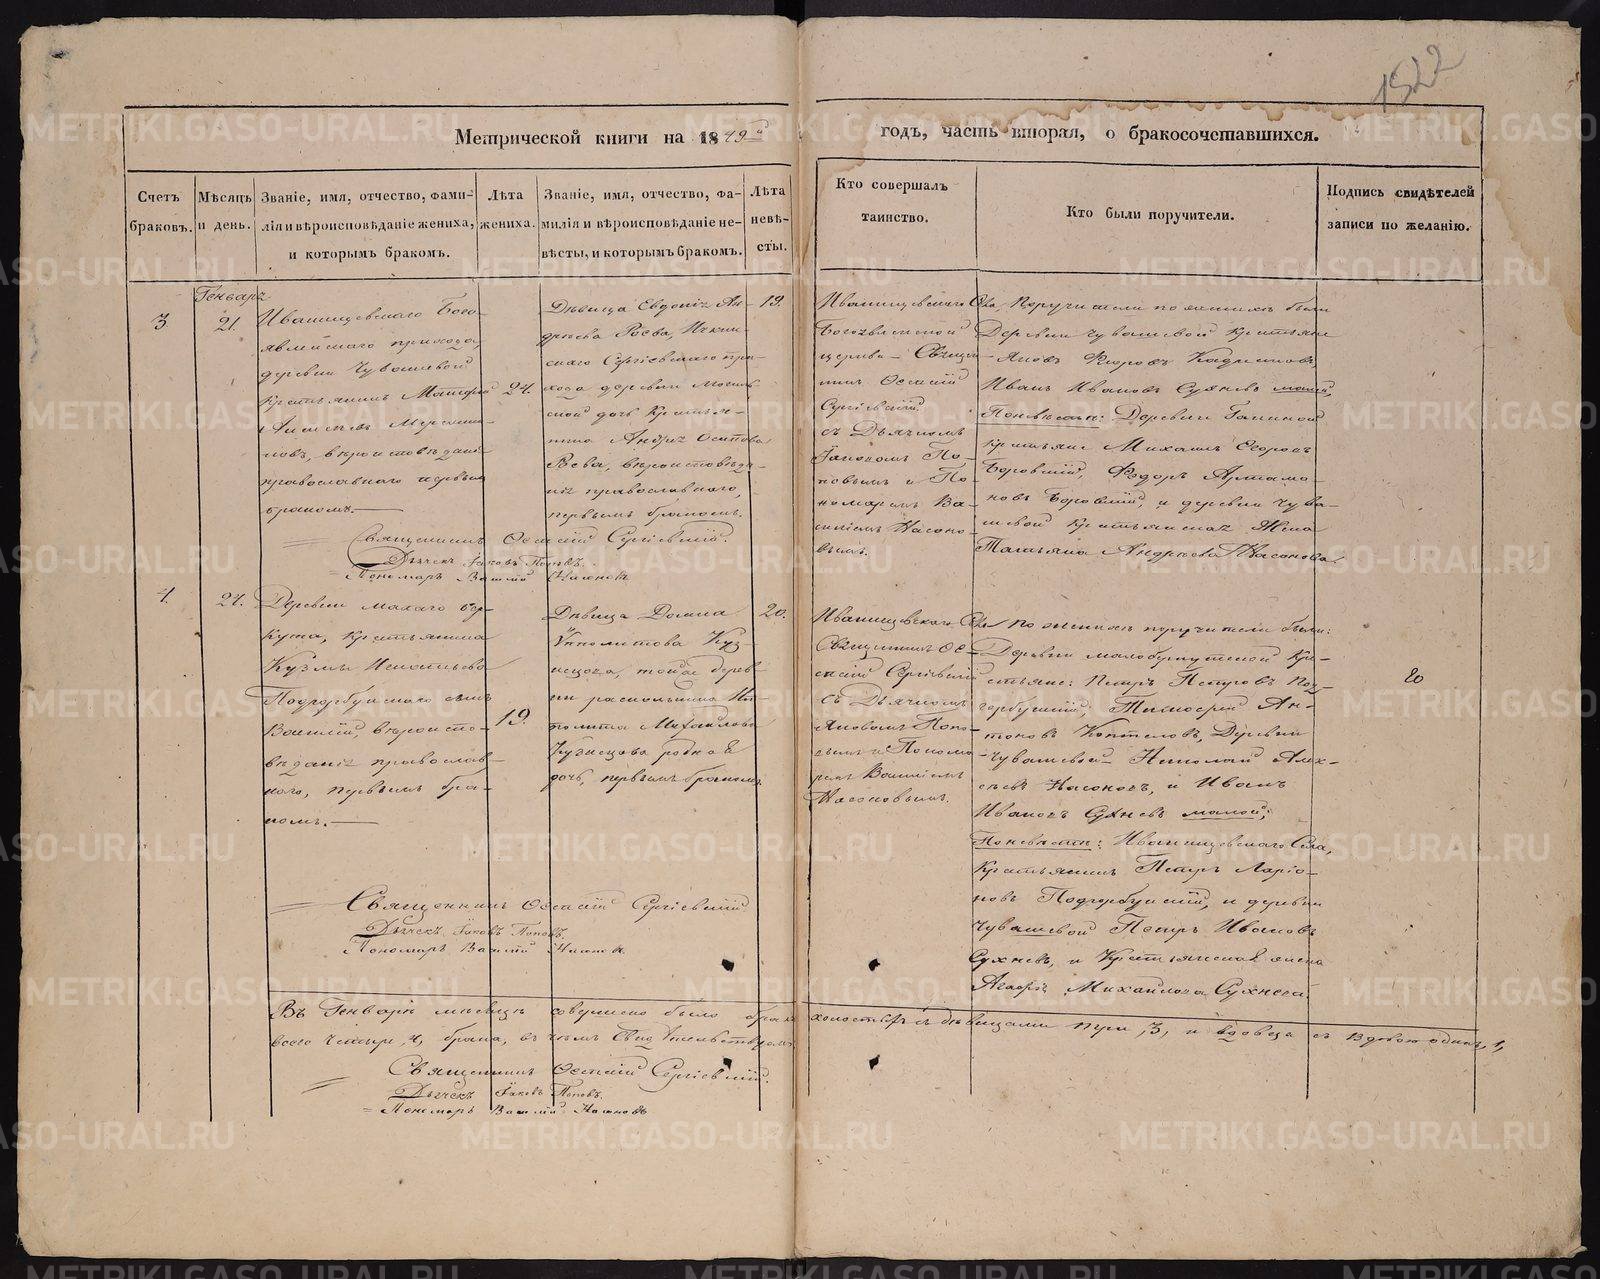 1522
Метрической книги на 1849й
годъ, часть вторая, о бракосочетавшихся.
Счетъ браковъ.
Мѣсяцъ и день.
Званіе, имя, отчество, фами-
лія и вѣроисповѣданіе жениха,
и которымъ бракомъ.
Лѣта
жениха.
Званіе, имя, отчество, фа-
милія и вѣроисповѣданіе не-
вѣсты, и которымъ бракомъ.
Лѣта
невѣ-
сты.
Кто совершалъ
таинство.
Кто были поручители.
Подпись свидѣтелей
записи по желанію.
Генварь
3
21.
Иванищевскаго Бого-
явленскаго прихода,
деревни Чувашевой
Крестьянинъ
новъ, вѣроисповѣданія
православнаго первымъ
бракомъ.
24.
Дѣвица Евдокія Ан-
дреева
скаго Сергіевскаго при-
хода деревни
ской дочь Крестья-
нина Андрея Осипова
вѣроисповѣда-
нія православнаго,
первымъ бракомъ.
19.
Иванищевскаго Села
Богоявленской
церкви Священ-
никъ
Сергіевскій
съ Дьячкомъ
Іаковомъ По-
повымъ и По-
номаремъ Ва-
силіемъ Насоно-
вымъ.
Поручители по женихѣ были
Деревни Чувашевой Крестьяне
Яковъ
Иванъ Ивановъ Сухневъ малой,
По невѣстѣ: Деревни
Крестьяне Михаилъ
Боровскій, Федоръ Артамо-
новъ Боровскій, и деревни Чува-
шевой Крестьянская Жена
Татьяна Андреева Насонова.
Священникъ Сергіевскій.
Дьячекъ Іаковъ Поповъ.
Пономарь Василій Насоновъ
4.
24.
Деревни Малаго Бер-
кута, Крестьянина
Кузьмы
Подгорбунскаго сынъ
Василій, вѣроиспо-
вѣданія православ-
наго, первымъ бра-
комъ.
19.
Дѣвица Домна
Ипполитова Куз-
нецова, тойже дерев-
ни раскольника Ип-
полита Михайлова
Кузнецова родная
дочь, первымъ бракомъ.
20.
Иванищевскаго Села
Священникъ
Сергіевскій
съ Дьячкомъ
Яковомъ Попо-
вымъ и Понома-
ремъ Василіемъ
Насоновымъ.
По женихѣ поручители были:
Деревни Малоберкутской Кре-
стьяне: Петръ Петровъ Под-
горбунскій, Тимофей Ан-
тоновъ Коптеловъ, Деревни
Чувашевой Николай Алек-
сѣевъ Насоновъ, и Иванъ
Ивановъ Сухневъ малой;
По невѣстѣ: Иванищевскаго Села,
Крестьянинъ Петръ Ларіо-
новъ Подгорбунскій, и деревни
Чувашевой Петръ Ивановъ
Сухневъ, и Крестьянская жена
Агафья Михайлова Сухнева
Священникъ Сергіевскій
Дьячекъ Іаковъ Поповъ.
Пономарь Василій Насоновъ
Въ Генварѣ мѣсяцѣ совершено было брак
всего четыре, 4, брака, въ чемъ Свидѣтельствуемъ
холостыхъ съ дѣвицами три, 3, и вдовца съ вдовою одинъ, 1,
Священникъ Сергіевскій.
Дьячекъ Іаковъ Поповъ.
Пономарь Василій Насоновъ
METRIKI.GASO-URAL.RU